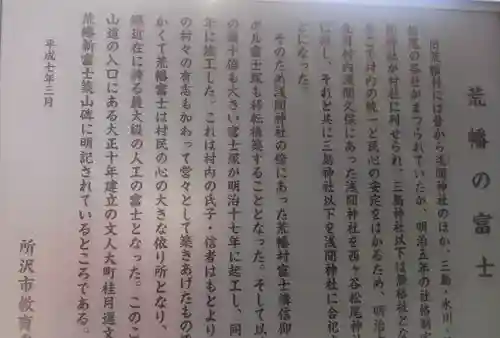 荒幡の富士
旧荒幡村には昔から浅間神社のほか、三島・氷川・
松尾の各社がまつられていたが、明治五年の社格制定
間神社が村社に列せられ、三島神社以下は無格社とな
そこで村内の統一と民心の安定をはかるため、明治
年
村内浅間久保にあった浅間神社を西ヶ谷松尾神社
に移し、それと共に三島神社以下を浅間神社に合祀
とになった。
そのため浅間神社の傍にあった荒幡村富士講信仰
ボル富士塚も移転構築することとなった。そして以
の何十倍も大きい富士塚が明治十七年に起工し、同
年に竣工した。これは村内の氏子・信者はもとより
の村々の有志も加わって営々として築きあげたもの
かくて荒幡富士は村民の心の大きな依り所となり、
郷近在に誇る最大級の人工の富士となった。このこ
山道の入口にある大正十年建立の文人大町桂月選文
荒幡新富士築山碑に明記されているところである。
平成七年三月
所沢市教育